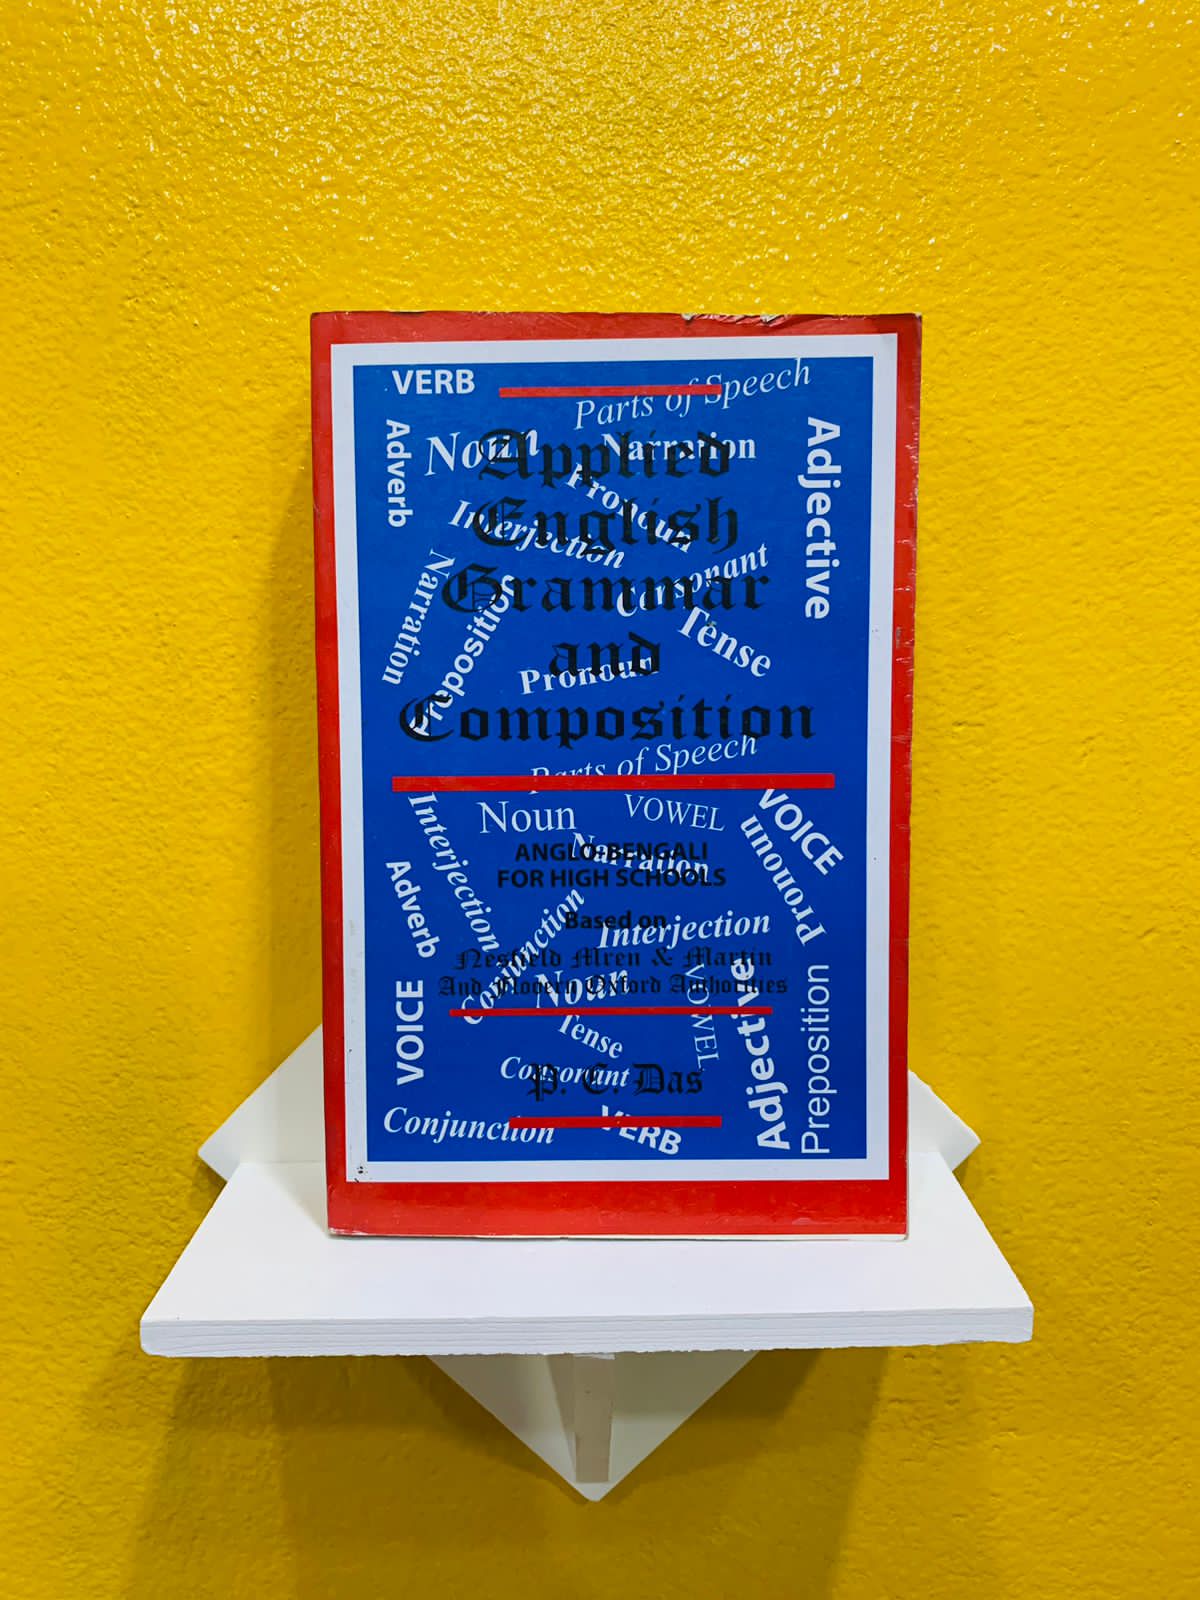 VERB
Parts of Speech
Adverb
Noun
Narration
Adjective
Applied
Pronoun
English
Interjection
Consonant
Narration
Grammar
Preposition
Tense
and
Pronoun
Composition
Parts of Speech
Interjection
Noun
VOWEL
VOICE
Pronoun
Narration
ANGLO-BENGALI
FOR HIGH SCHOOLS
Adverb
Conjunction
Based on
Interjection
Nesfield Wren & Martin
And Modern Oxford Authorities
Noun
VOWEL
Adjective
Preposition
VOICE
Tense
Consonant
P. C. Das
Conjunction
VERB